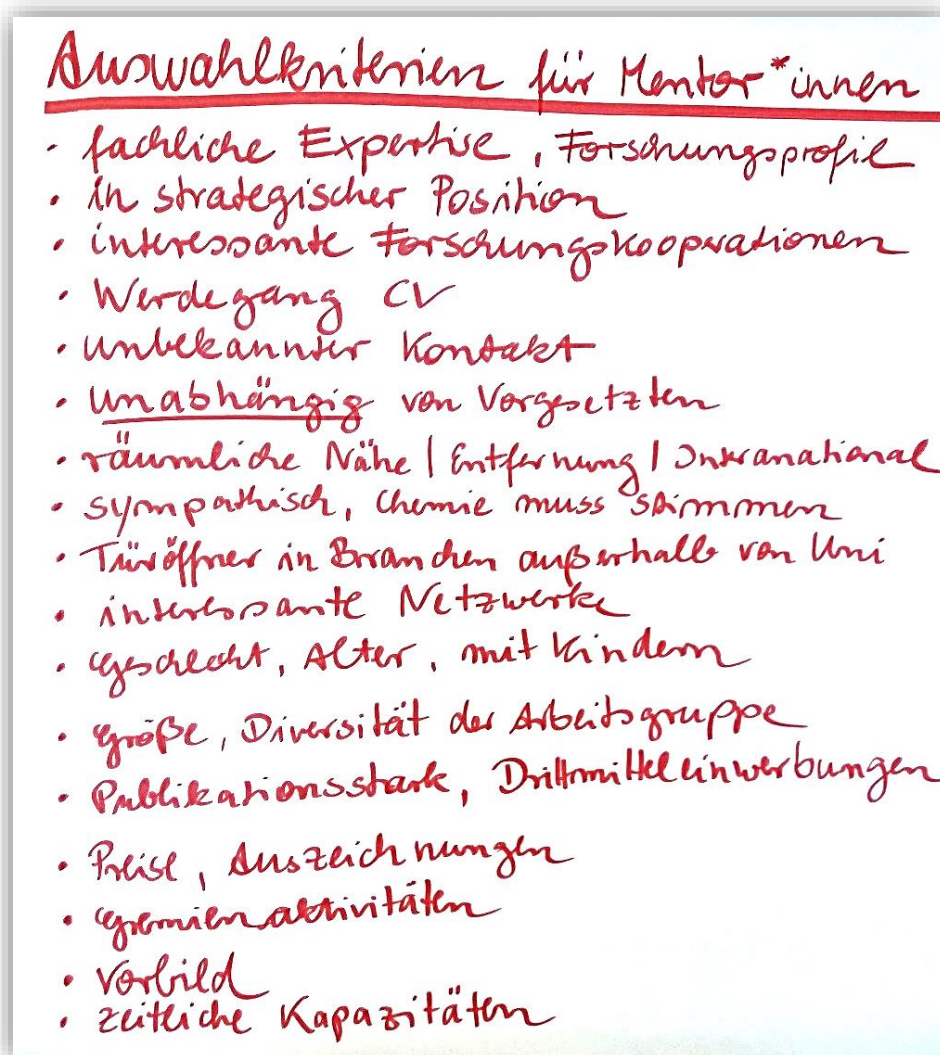 Auswahlkriterien für Mentor*innen
· fachliche Expertise, Forschungsprofil
· in strategischer Position
· interessante Forschungskooperationen
· Werdegang CV
· unbekannter Kontakt
· unabhängig von Vorgesetzten
· räumliche Nähe | Entfernung | International
· sympathisch, Chemie muss stimmen
· Türöffner in Branchen außerhalb von Uni
· interessante Netzwerke
· Geschlecht, Alter, mit Kindern
· Größe, Diversität der Arbeitsgruppe
· Publikationsstark, Drittmitteleinwerbungen
· Preise, Auszeichnungen
· Gremienaktivitäten
· Vorbild
· zeitliche Kapazitäten